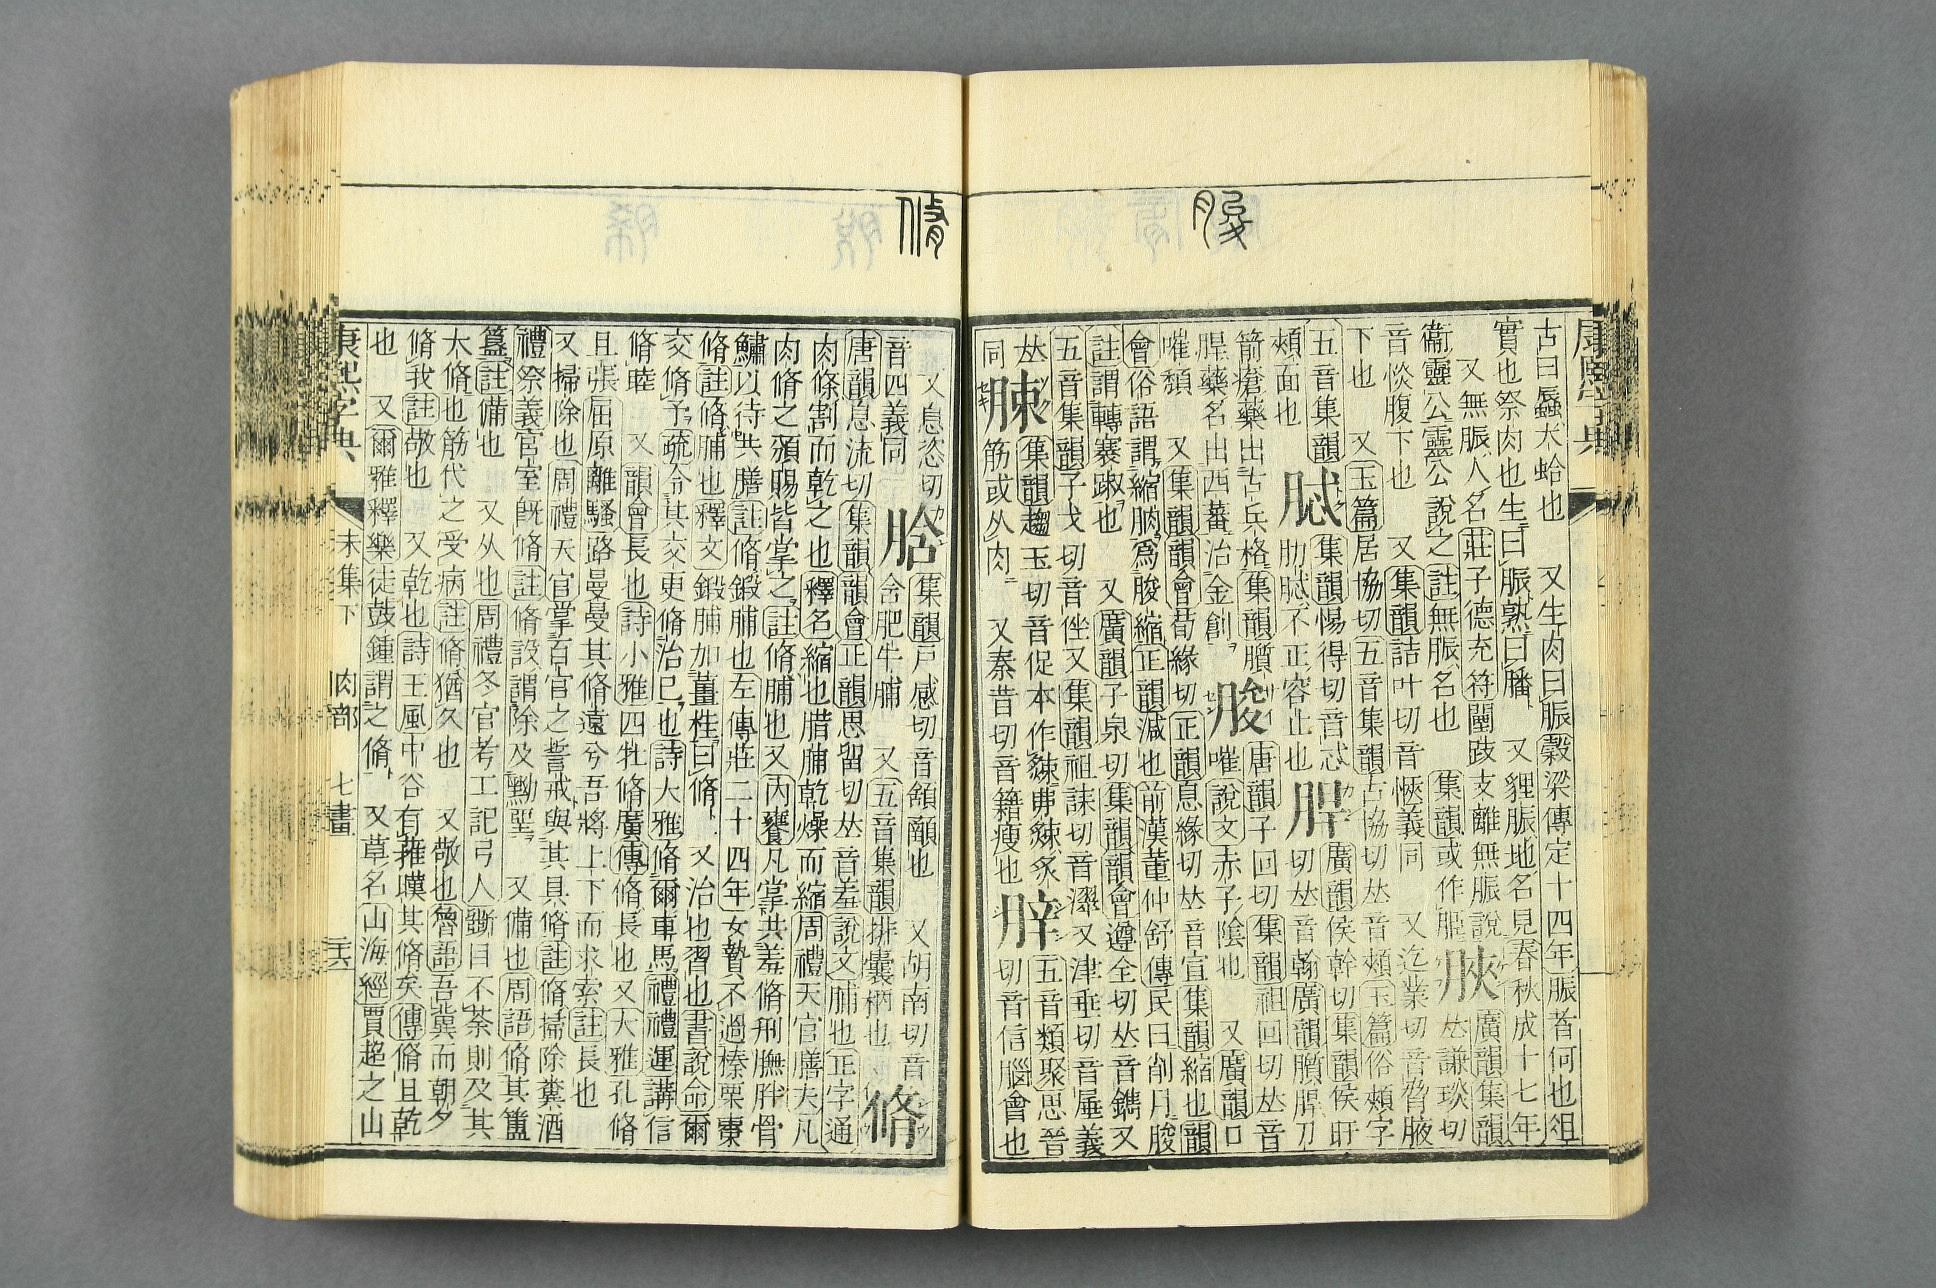 朘
古曰蜃大蛤也　又生肉曰脤穀梁傳定十四年脤者何也俎
實也祭肉也生曰脤熟曰膰　又貍脤地名見春秋成十七年
又無脤人名莊子德充符闉跂支離無脤說
衞靈公靈公說之註無脤名也　集韻或作
脥
廣韻集韻
𠀤謙琰切
音慊腹下也　又集韻詰叶切音愜義同　又迄業切音脅腋
下也　又玉篇居協切五音集韻古協切𠀤音頰玉篇俗頰字
五音集韻
頰面也
脦
集韻惕得切音忒
肕脦不正容止也
廣韻侯幹切集韻侯旰
切𠀤音翰廣韻刀
箭瘡藥出古兵格集韻
藥名出西蕃治金創
朘
唐韻子回切集韻祖回切𠀤音
嗺說文赤子陰也　又廣韻口
嗺頹　又集韻韻會荀緣切正韻息緣切𠀤音宣集韻縮也韻
會俗語謂縮朒爲朘縮正韻減也前漢董仲舒傳民日削月朘
註謂轉褰踧也　又廣韻子泉切集韻韻會遵全切𠀤音鐫又
五音集韻子戈切音侳又集韻祖誄切音濢又津垂切音厜義
𠀤
同
脨
集韻趨玉切音促本作
筋或从肉　又秦昔切音籍瘦也
五音類聚思晉
切音信腦會也
康熙字典
脩
又息恣切
音四義同
脴
集韻戸感切音頷
含肥牛脯　又五音集韻排囊柄也　又胡南切音
脩
唐韻息流切集韻韻會正韻思留切𠀤音羞說文脯也正字通
肉條割而乾之也釋名縮也腊脯乾燥而縮周禮天官膳夫凡
肉脩之頒賜皆掌之註脩脯也又內饔凡掌共羞脩刑膴胖骨
鱐以待共膳註脩鍛脯也左傳莊二十四年女贄不過榛栗棗
脩註脩脯也釋文鍛脯加薑桂曰脩　又治也習也書說命爾
交脩予疏令其交更脩治已也詩大雅脩爾車馬禮禮運講信
脩睦　又韻會長也詩小雅四牡脩廣傳脩長也又大雅孔脩
且張屈原離騷路曼曼其脩遠兮吾將上下而求索註長也
又掃除也周禮天官掌百官之誓戒與其具脩註脩掃除糞洒
禮祭義官室旣脩註脩設謂除及黝堊　又備也周語脩其簠
簋註備也　又从也周禮冬官考工記弓人斲目不荼則及其
大脩也筋代之受病註脩猶久也　又敬也魯語吾冀而朝夕
脩我註敬也　又乾也詩王風中谷有蓷暵其脩矣傳脩且乾
也　又爾雅釋樂徒鼓鍾謂之脩　又草名山海經賈超之山
康熙字典
未集下
肉部
七畫